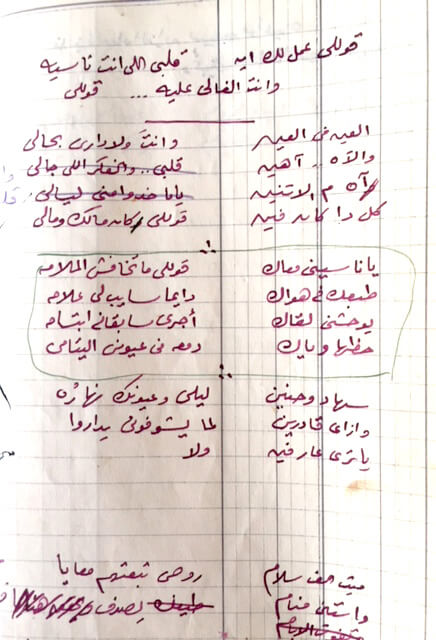 قوللى عمل لك ايه قلبى اللى انت ناسيه
وانت الغالى عليه ... قوللى
العين فى العين وانت ولا دارى بحالى
والآه .. آهين قلبى .. والفكر اللى جالى
آه م الاتنين ياما خدوا منى ليالى
كل دا كان فين قوللى كان مالك ومالى
يا ناسينى معاك قوللى ما تخافش الملامه
طبعك فى هواك دايما سايب لى علامه
يوحشنى لقاك أجرى سابقانى ابتسامه
وياك دمعه فى عيون اليتامى
سهاد وحنين ليلى وعيونك نهاره
وازاى قادرين لما يشوفونى يداروا
يا ترى عارفين ولا
ميت الف سلام روحى تبعتهم معايا
واستنى منام بصدف